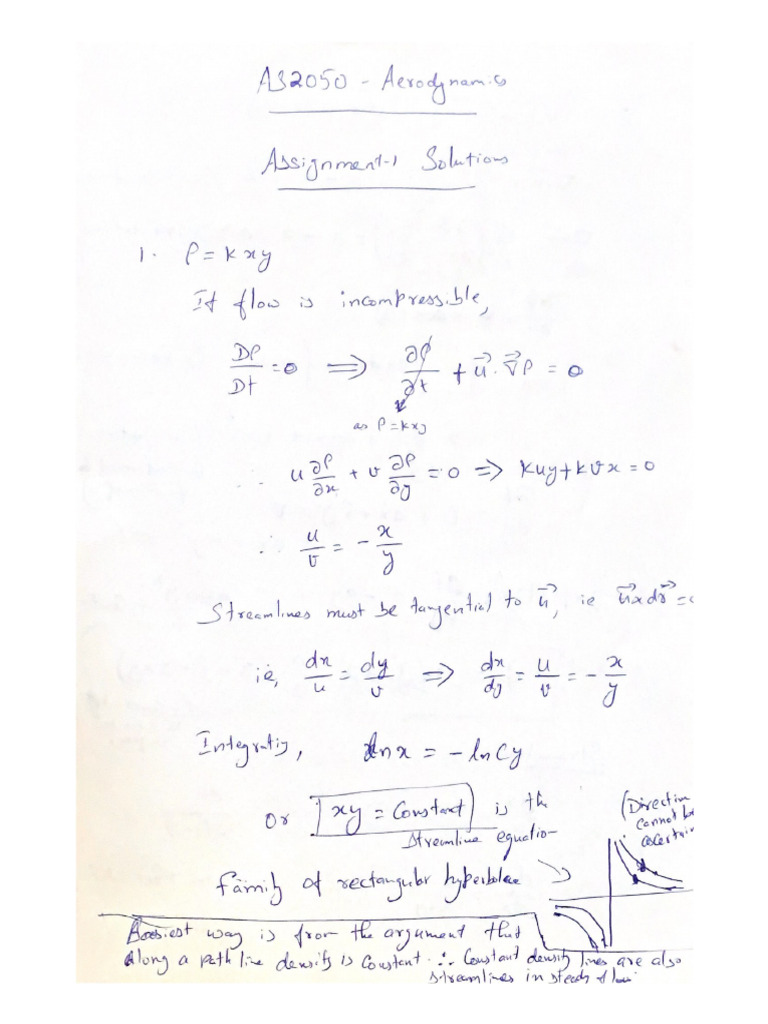 AS2050 - Aerodynamics
Assignment-1 Solutions
1. ρ = kxy
If flow is incompressible,
Dρ/Dt = 0 ⟹ ∂ρ/∂t + u⃗·∇⃗ρ = 0
as ρ = kxy
∴ u ∂ρ/∂x + v ∂ρ/∂y = 0 ⟹ kuy + kvx = 0
∴ u/v = -x/y
Streamlines must be tangential to u⃗, ie u⃗ x dr⃗ =
ie, dx/u = dy/v ⟹ dx/dy = u/v = -x/y
Integratig, ln x = - ln Cy
or xy = Constant is the
Streamline equation
(Direction
cannot be
Family of rectangular hyperbolae
Easiest way is from the argument that
Along a path line density is Constant ∴ Constant density lines are also
streamlines in steady flow